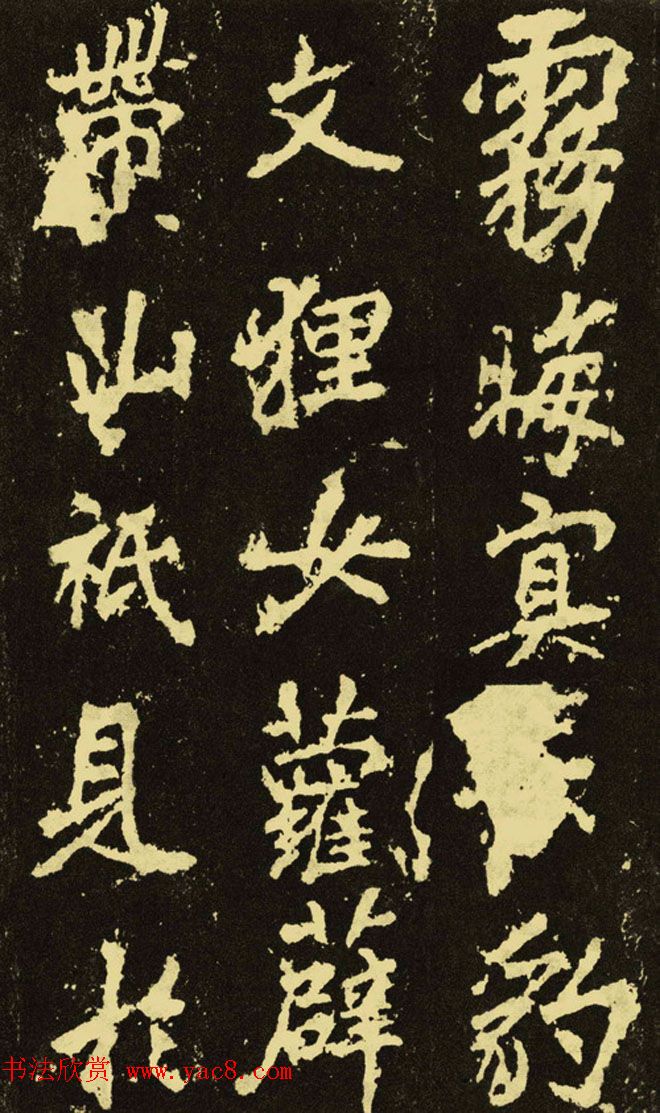 霧晦冥豹
文狸女蘿薜
帶祇見於
书法欣赏 www.yac8.com